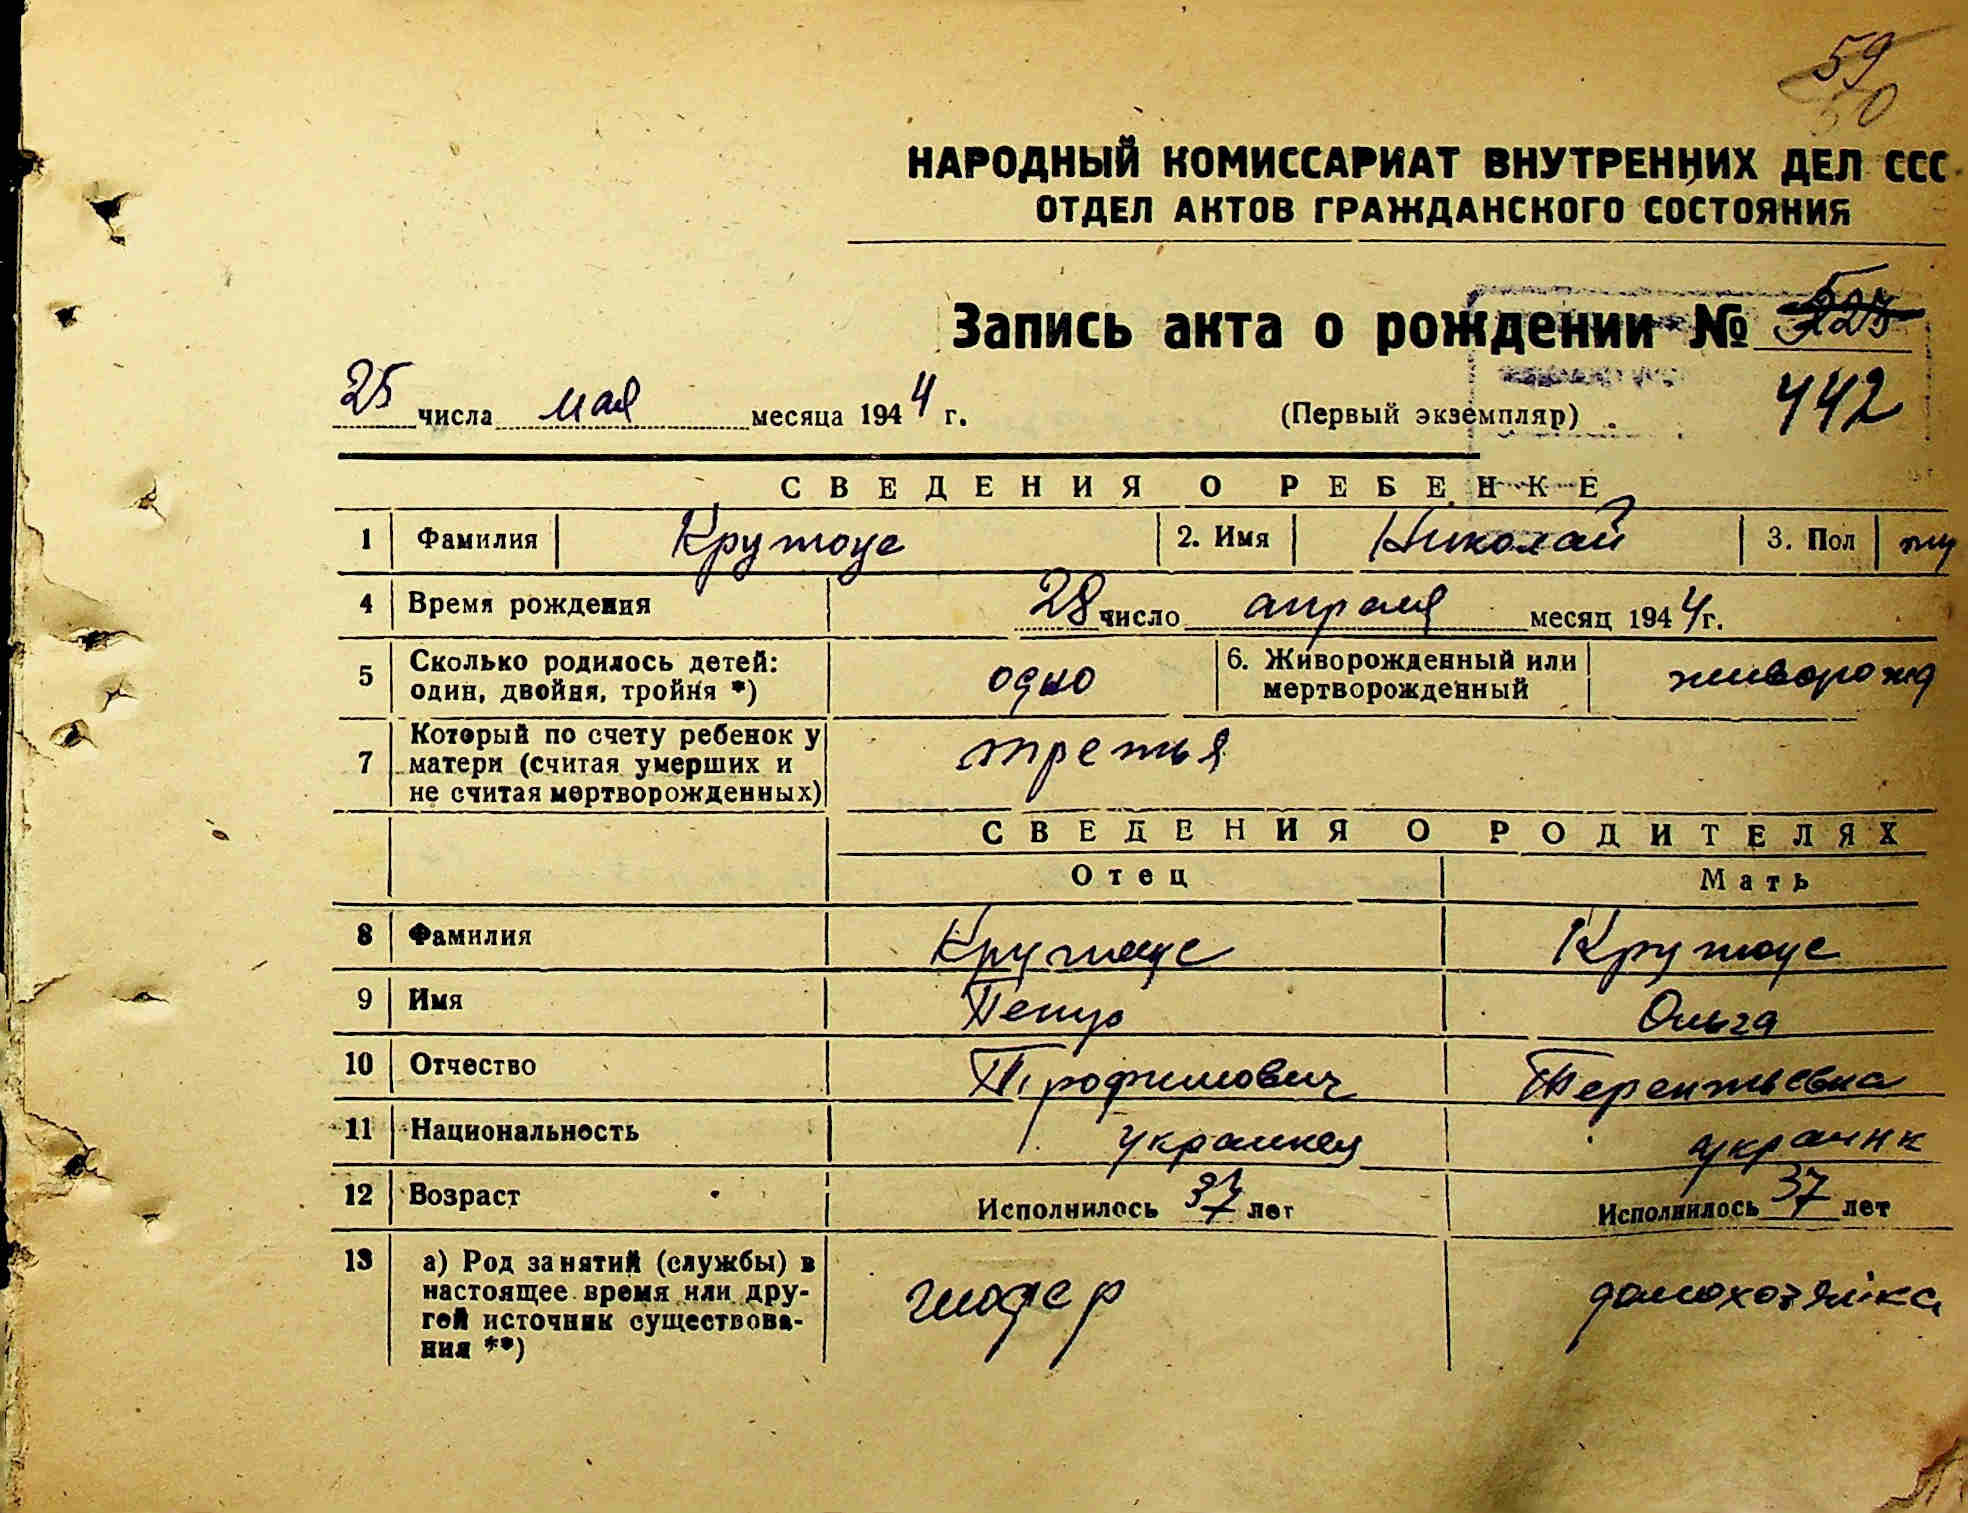 59
60
НАРОДНЫЙ КОМИССАРИАТ ВНУТРЕННИХ ДЕЛ ССС
ОТДЕЛ АКТОВ ГРАЖДАНСКОГО СОСТОЯНИЯ
Запись акта о рождении №
25 числа мая месяца 1944 г. (Первый экземпляр) 442
СВЕДЕНИЯ О РЕБЕНКЕ
1 Фамилия Крутоус 2. Имя Николай 3. Пол му
4 Время рождения 28 число апреля месяц 1944 г.
5 Сколько родилось детей: один, двойня, тройня *) одно 6. Живорожденный или мертворожденный живорожд
7 Который по счету ребенок у матери (считая умерших и не считая мертворожденных) третья
СВЕДЕНИЯ О РОДИТЕЛЯХ
Отец Мать
8 Фамилия Крутоус Крутоус
9 Имя Петр Ольга
10 Отчество Трофимович Терентьевна
11 Национальность украинец украинк
12 Возраст Исполнилось 37 лет Исполнилось 37 лет
13 а) Род занятий (службы) в настоящее время или другой источник существования **) шофер домохозяйка